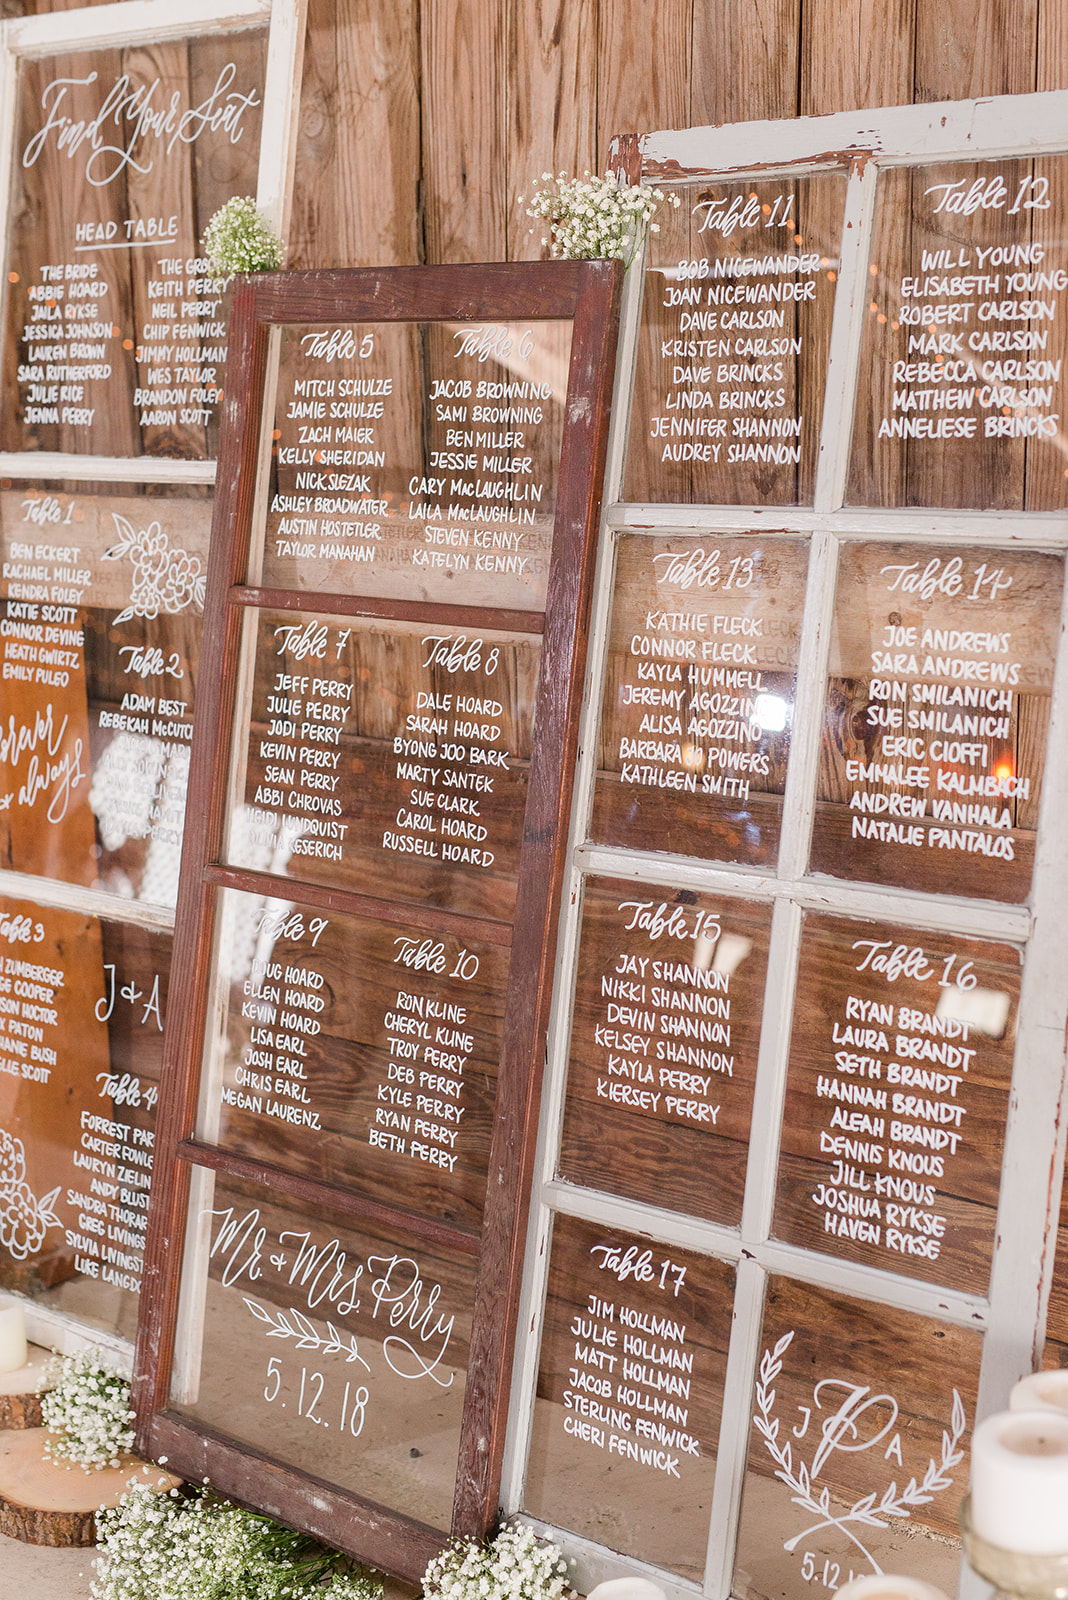 Find Your Seat
HEAD TABLE
THE BRIDE
ABBIE HOARD
JAILA RYKSE
JESSICA JOHNSON
LAUREN BROWN
SARA RUTHERFORD
JULIE RICE
JENNA PERRY
THE
KEITH PERRY
NEIL PERRY
CHIP FENWICK
JIMMY HOLLMAN
WES TAYLOR
BRANDON FOLEY
AARON SCOTT
Table 1
BEN ECKERT
RACHAEL MILLER
KENDRA FOLEY
KATIE SCOTT
CONNOR DEVINE
HEATH GWIRTZ
EMILY PULEO
Table 2
ADAM BEST
REBEKAH
forever
& always
Table 3
ZUMBERGER
COOPER
HOCTOR
PATON
BUSH
SCOTT
J & A
Table 4
FORREST
CARTER
LAURYN
ANDY
SANDRA
GREG
SYLVIA
LUKE
Table 5
MITCH SCHULZE
JAMIE SCHULZE
ZACH MAIER
KELLY SHERIDAN
NICK SLEZAK
ASHLEY BROADWATER
AUSTIN HOSTETLER
TAYLOR MANAHAN
Table 6
JACOB BROWNING
SAMI BROWNING
BEN MILLER
JESSIE MILLER
CARY MACLAUGHLIN
LAILA MACLAUGHLIN
STEVEN KENNY
KATELYN KENNY
Table 7
JEFF PERRY
JULIE PERRY
JODI PERRY
KEVIN PERRY
SEAN PERRY
ABBI CHROVAS
HEIDI LUNDQUIST
OLIVIA KESERICH
Table 8
DALE HOARD
SARAH HOARD
BYONG JOO BARK
MARTY SANTEK
SUE CLARK
CAROL HOARD
RUSSELL HOARD
Table 9
DOUG HOARD
ELLEN HOARD
KEVIN HOARD
LISA EARL
JOSH EARL
CHRIS EARL
MEGAN LAURENZ
Table 10
RON KLINE
CHERYL KLINE
TROY PERRY
DEB PERRY
KYLE PERRY
RYAN PERRY
BETH PERRY
Mr. & Mrs. Perry
5.12.18
Table 11
BOB NICEWANDER
JOAN NICEWANDER
DAVE CARLSON
KRISTEN CARLSON
DAVE BRINCKS
LINDA BRINCKS
JENNIFER SHANNON
AUDREY SHANNON
Table 12
WILL YOUNG
ELISABETH YOUNG
ROBERT CARLSON
MARK CARLSON
REBECCA CARLSON
MATTHEW CARLSON
ANNELIESE BRINCKS
Table 13
KATHIE FLECK
CONNOR FLECK
KAYLA HUMMELL
JEREMY AGOZZINO
ALISA AGOZZINO
BARBARA JO POWERS
KATHLEEN SMITH
Table 14
JOE ANDREWS
SARA ANDREWS
RON SMILANICH
SUE SMILANICH
ERIC CIOFFI
EMMALEE KALMBACH
ANDREW VANHALA
NATALIE PANTALOS
Table 15
JAY SHANNON
NIKKI SHANNON
DEVIN SHANNON
KELSEY SHANNON
KAYLA PERRY
KIERSEY PERRY
Table 16
RYAN BRANDT
LAURA BRANDT
SETH BRANDT
HANNAH BRANDT
ALEAH BRANDT
DENNIS KNOUS
JILL KNOUS
JOSHUA RYKSE
HAVEN RYKSE
Table 17
JIM HOLLMAN
JULIE HOLLMAN
MATT HOLLMAN
JACOB HOLLMAN
STERLING FENWICK
CHERI FENWICK
J P A
5.12